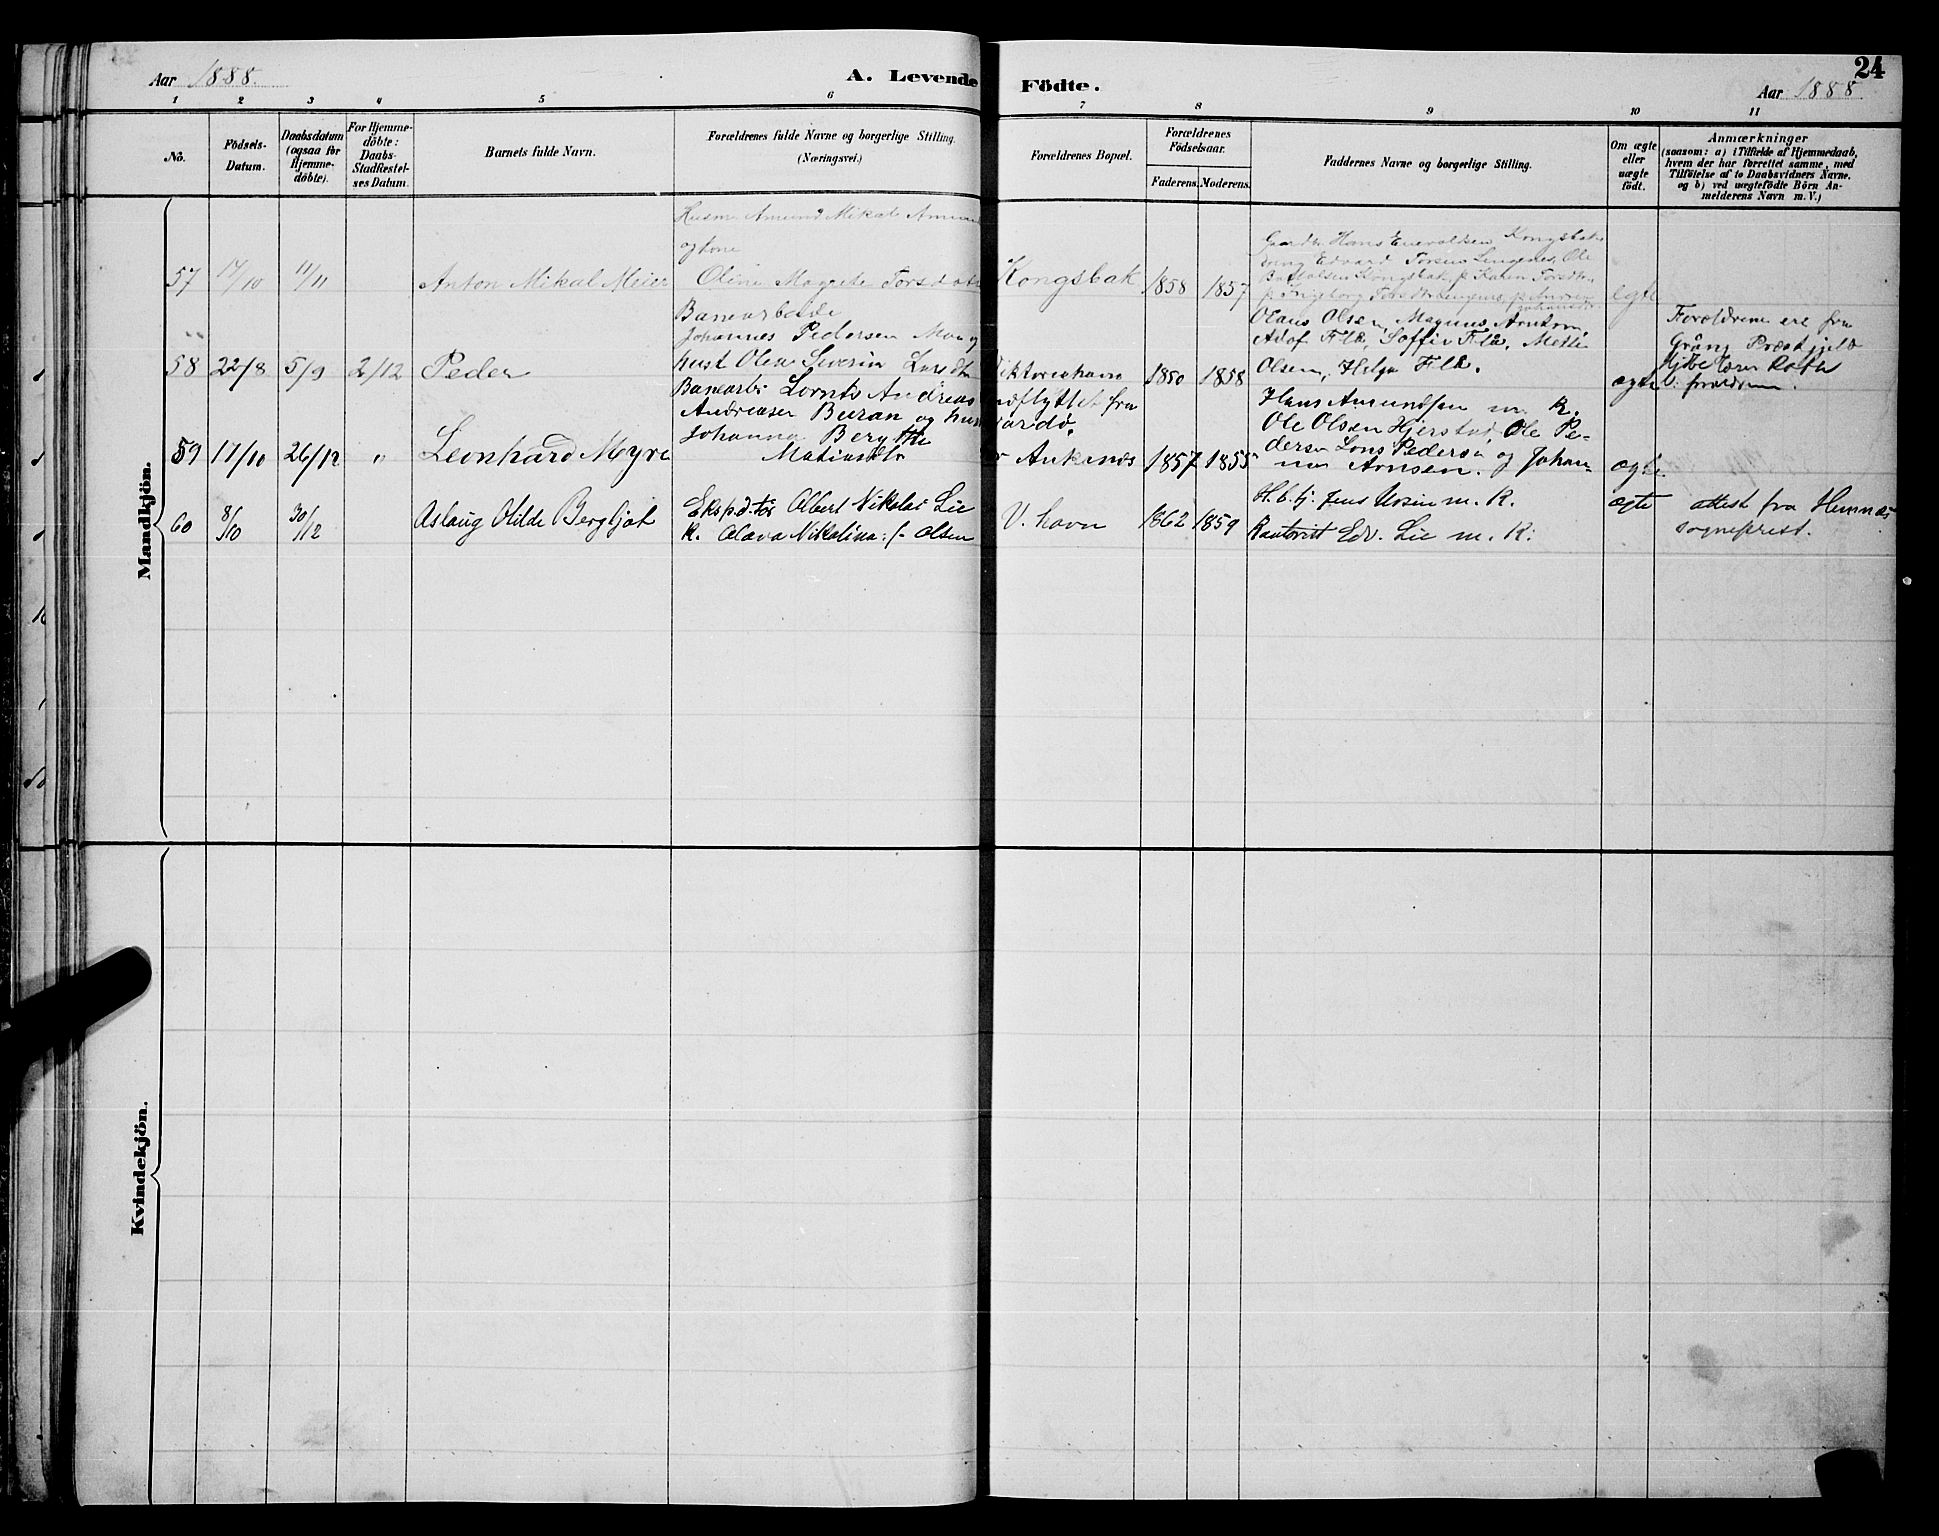 24
Aar 1888.
A. Levende Födte.
Aar 1888
1 2 3 4 5 6 7 8 9 10 11
No.
Födsels-
Datum.
Daabsdatum
(ogsaa for
Hjemme-
döbte).
For Hjemme-
döbte:
Daabs-
Stadfæstel-
ses Datum.
Barnets fulde Navn.
Forældrenes fulde Navne og borgerlige Stilling.
(Næringsvei.)
Forældrenes Bopæl.
Forældrenes
Födselsaar.
Faderens. Moderens.
Faddernes Navne og borgerlige Stilling.
Om ægte
eller
uægte
födt.
Anmærkninger
(saasom: a) i Tilfælde af Hjemmedaab,
hvem der har forrettet samme, med
Tilföielse af to Daabsvidners Navne,
og b) ved uægtefödte Börn An-
melderens Navn m. V.)
Mandkjön.
57 17/10 11/11 Anton Mikal Meier
Husm. Amund Mikal
og kone
Oline Magrete Torsdatr
Kongsbak 1858 1857
Hans Enevoldsen Kongsbak
Edvard Torsen Lengenes, Ole
Kongsbak, p. Karen Torsdtr.
p. Ingeborg Torsdtr
egte
58 22/8 5/9 2/12 Peder
Banearbeide
Johannes Pedersen Moe og
hust Olea Severin Larsdtr
Viktoriahavn 1850 1858
Olaus Olsen, Magnus
Adof Flå, Soffie Flå, Mette
Olsen, Helga Flå.
ægte
Forældrene ere fra
Grång Præstgjeld
59 17/10 26/12 " Leonhard Myre
Banearb. Lornts Andreas
Andreasen Buran og hust
Johanna Bergitte
Matiasdtr
indflyttet fra
Vardø.
Ankenes 1857 1855
Hans Amundsen m. K.
Ole Olsen Hjerstad, Ole Pe-
dersen Lons Pedersen og Johan-
nes Arnsen.
ægte
60 8/10 30/12 Aslaug Otilde Bergljot
Ekspditør Albert Nikolai Lie
K. Olava Nikolina f. Olsen
V. havn 1862 1859
H.b.tj. Jens Ursin m. K.
Edv. Lie m. K.
ægte
attest fra Hemnæs
sogneprest.
Kvindekjön.